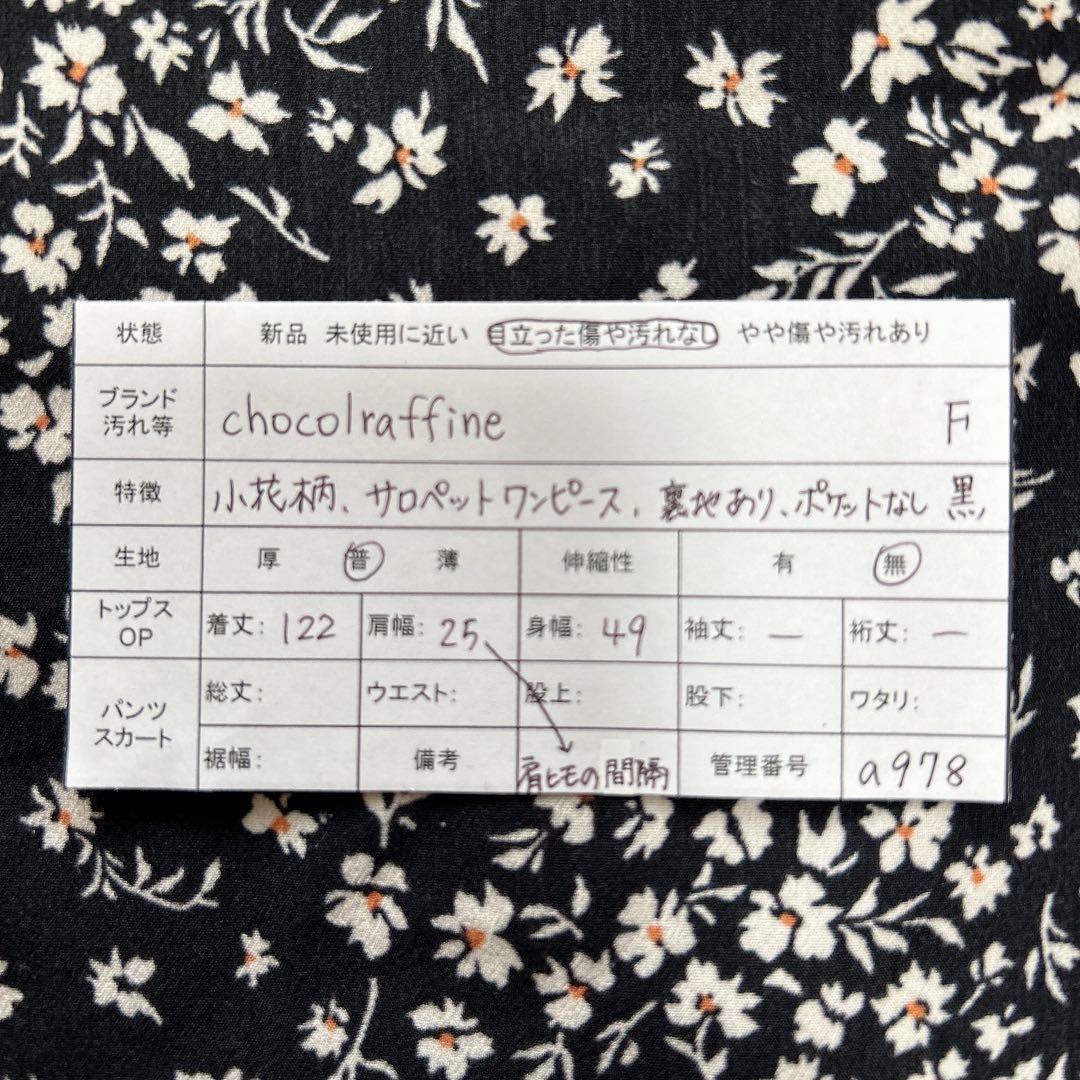 状態 新品 未使用に近い 目立った傷や汚れなし やや傷や汚れあり
ブランド
汚れ等 chocolraffine F
特徴 小花柄、サロペットワンピース、裏地あり、ポケットなし 黒
生地 厚 普 薄 伸縮性 有 無
トップス
OP 着丈: 122 肩幅: 25 身幅: 49 袖丈: ー 裄丈: ー
パンツ
スカート 総丈: ウエスト: 股上: 股下: ワタリ:
裾幅: 備考 肩ヒモの間隔 管理番号 a978